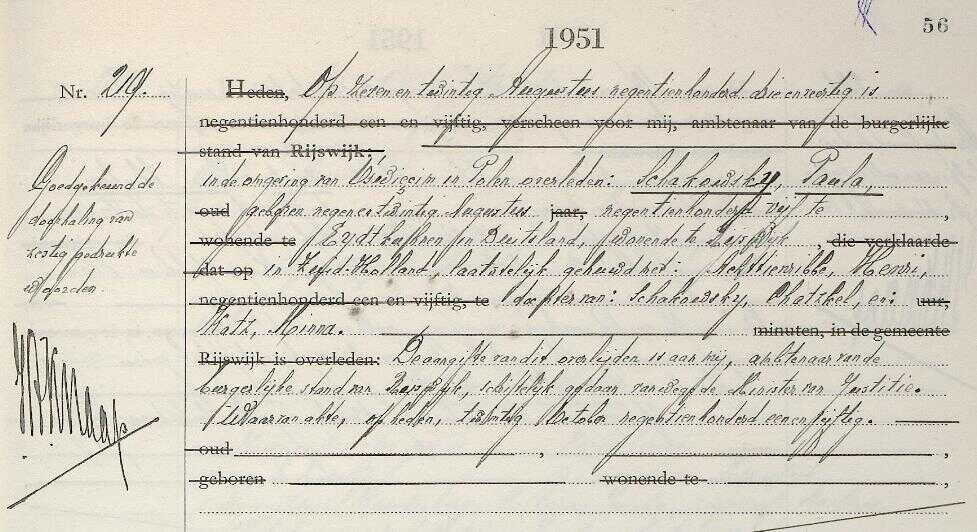 56
1951
Nr. 219.
Heden, Op zeven en twintig Augustus negentienhonderd drie en veertig is
negentienhonderd een en vijftig, verscheen voor mij, ambtenaar van de burgerlijke
stand van Rijswijk:
in de omgeving van in Polen overleden: Schakowsky, Paula,
oud geboren negen en twintig Augustus jaar, negentienhonderd vijf te ,
wonende te Eydtkuhnen in Duitsland, wonende te Rijswijk , die verklaarde
dat op in Zuid-Holland, laatstelijk gehuwd met: Achttienribbe, Henri,
negentienhonderd een en vijftig, te dochter van: Schakowsky, Chatzkel, en: uur,
Katz, Minna. minuten, in de gemeente
Rijswijk is overleden: De aangifte van dit overlijden is aan mij, ambtenaar van de
burgerlijke stand van Rijswijk, schriftelijk gedaan vanwege de Minister van Justitie.
Waarvan akte, op heden, twintig October negentienhonderd een en vijftig.
oud , ,
geboren wonende te ,
Goedgekeurd de
doorhaling van
zestig gedrukte
woorden.